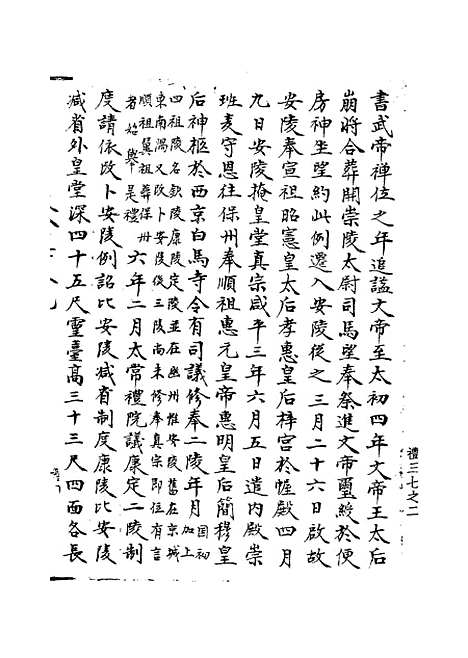 書武帝禅位之年追謚文帝至太初四年文帝王太后
崩將合葬開崇陵太尉司馬望奉祭進文帝璽綬於便
房神坐望約此例遷入安陵從之三月二十六日啟故
安陵奉宣祖昭憲皇太后孝惠皇后梓宮於幄殿四月
九日安陵掩皇堂真宗咸平三年六月五日遣内殿崇
班麦守恩往保州奉順祖惠元皇帝惠明皇后簡穆皇
后神柩於西京白馬寺令有司議修奉二陵年月國初加上
四祖陵名欽陵康陵定陵並在幽州惟安陵舊在京城
東南隅又改卜安陵後三陵尚未修奉真宗即位有言
順祖翼祖葬保州
者始舉是禮六年二月太常禮院議康定二陵制
度請依改卜安陵例詔比安陵減省制度康陵比安陵
减省外皇堂深四十五尺靈臺高三十三尺四面各長
禮三七之二